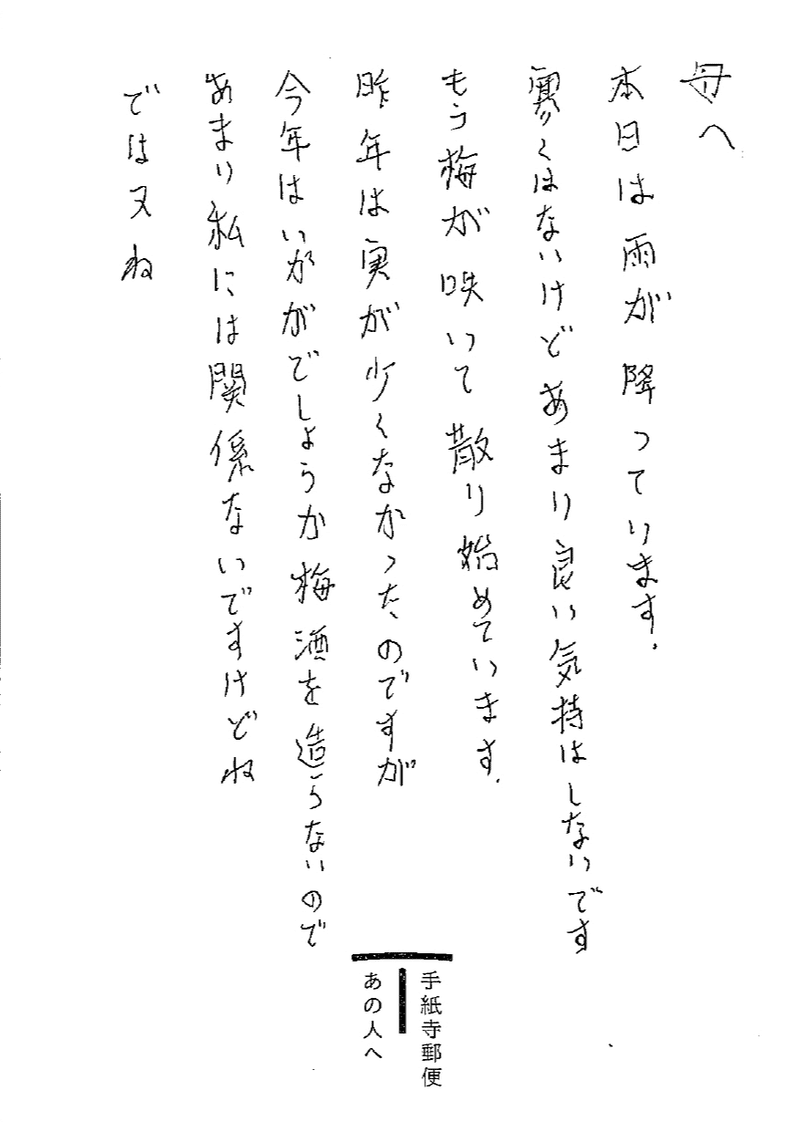 母へ
本日は雨が降っています.
寒くはないけどあまり良い気持はしないです
もう梅が咲いて散り始めています.
昨年は実が少くなかったのですが
今年はいかがでしょうか梅酒を造らないので
あまり私には関係ないですけどね
では又ね
手紙寺郵便
あの人へ